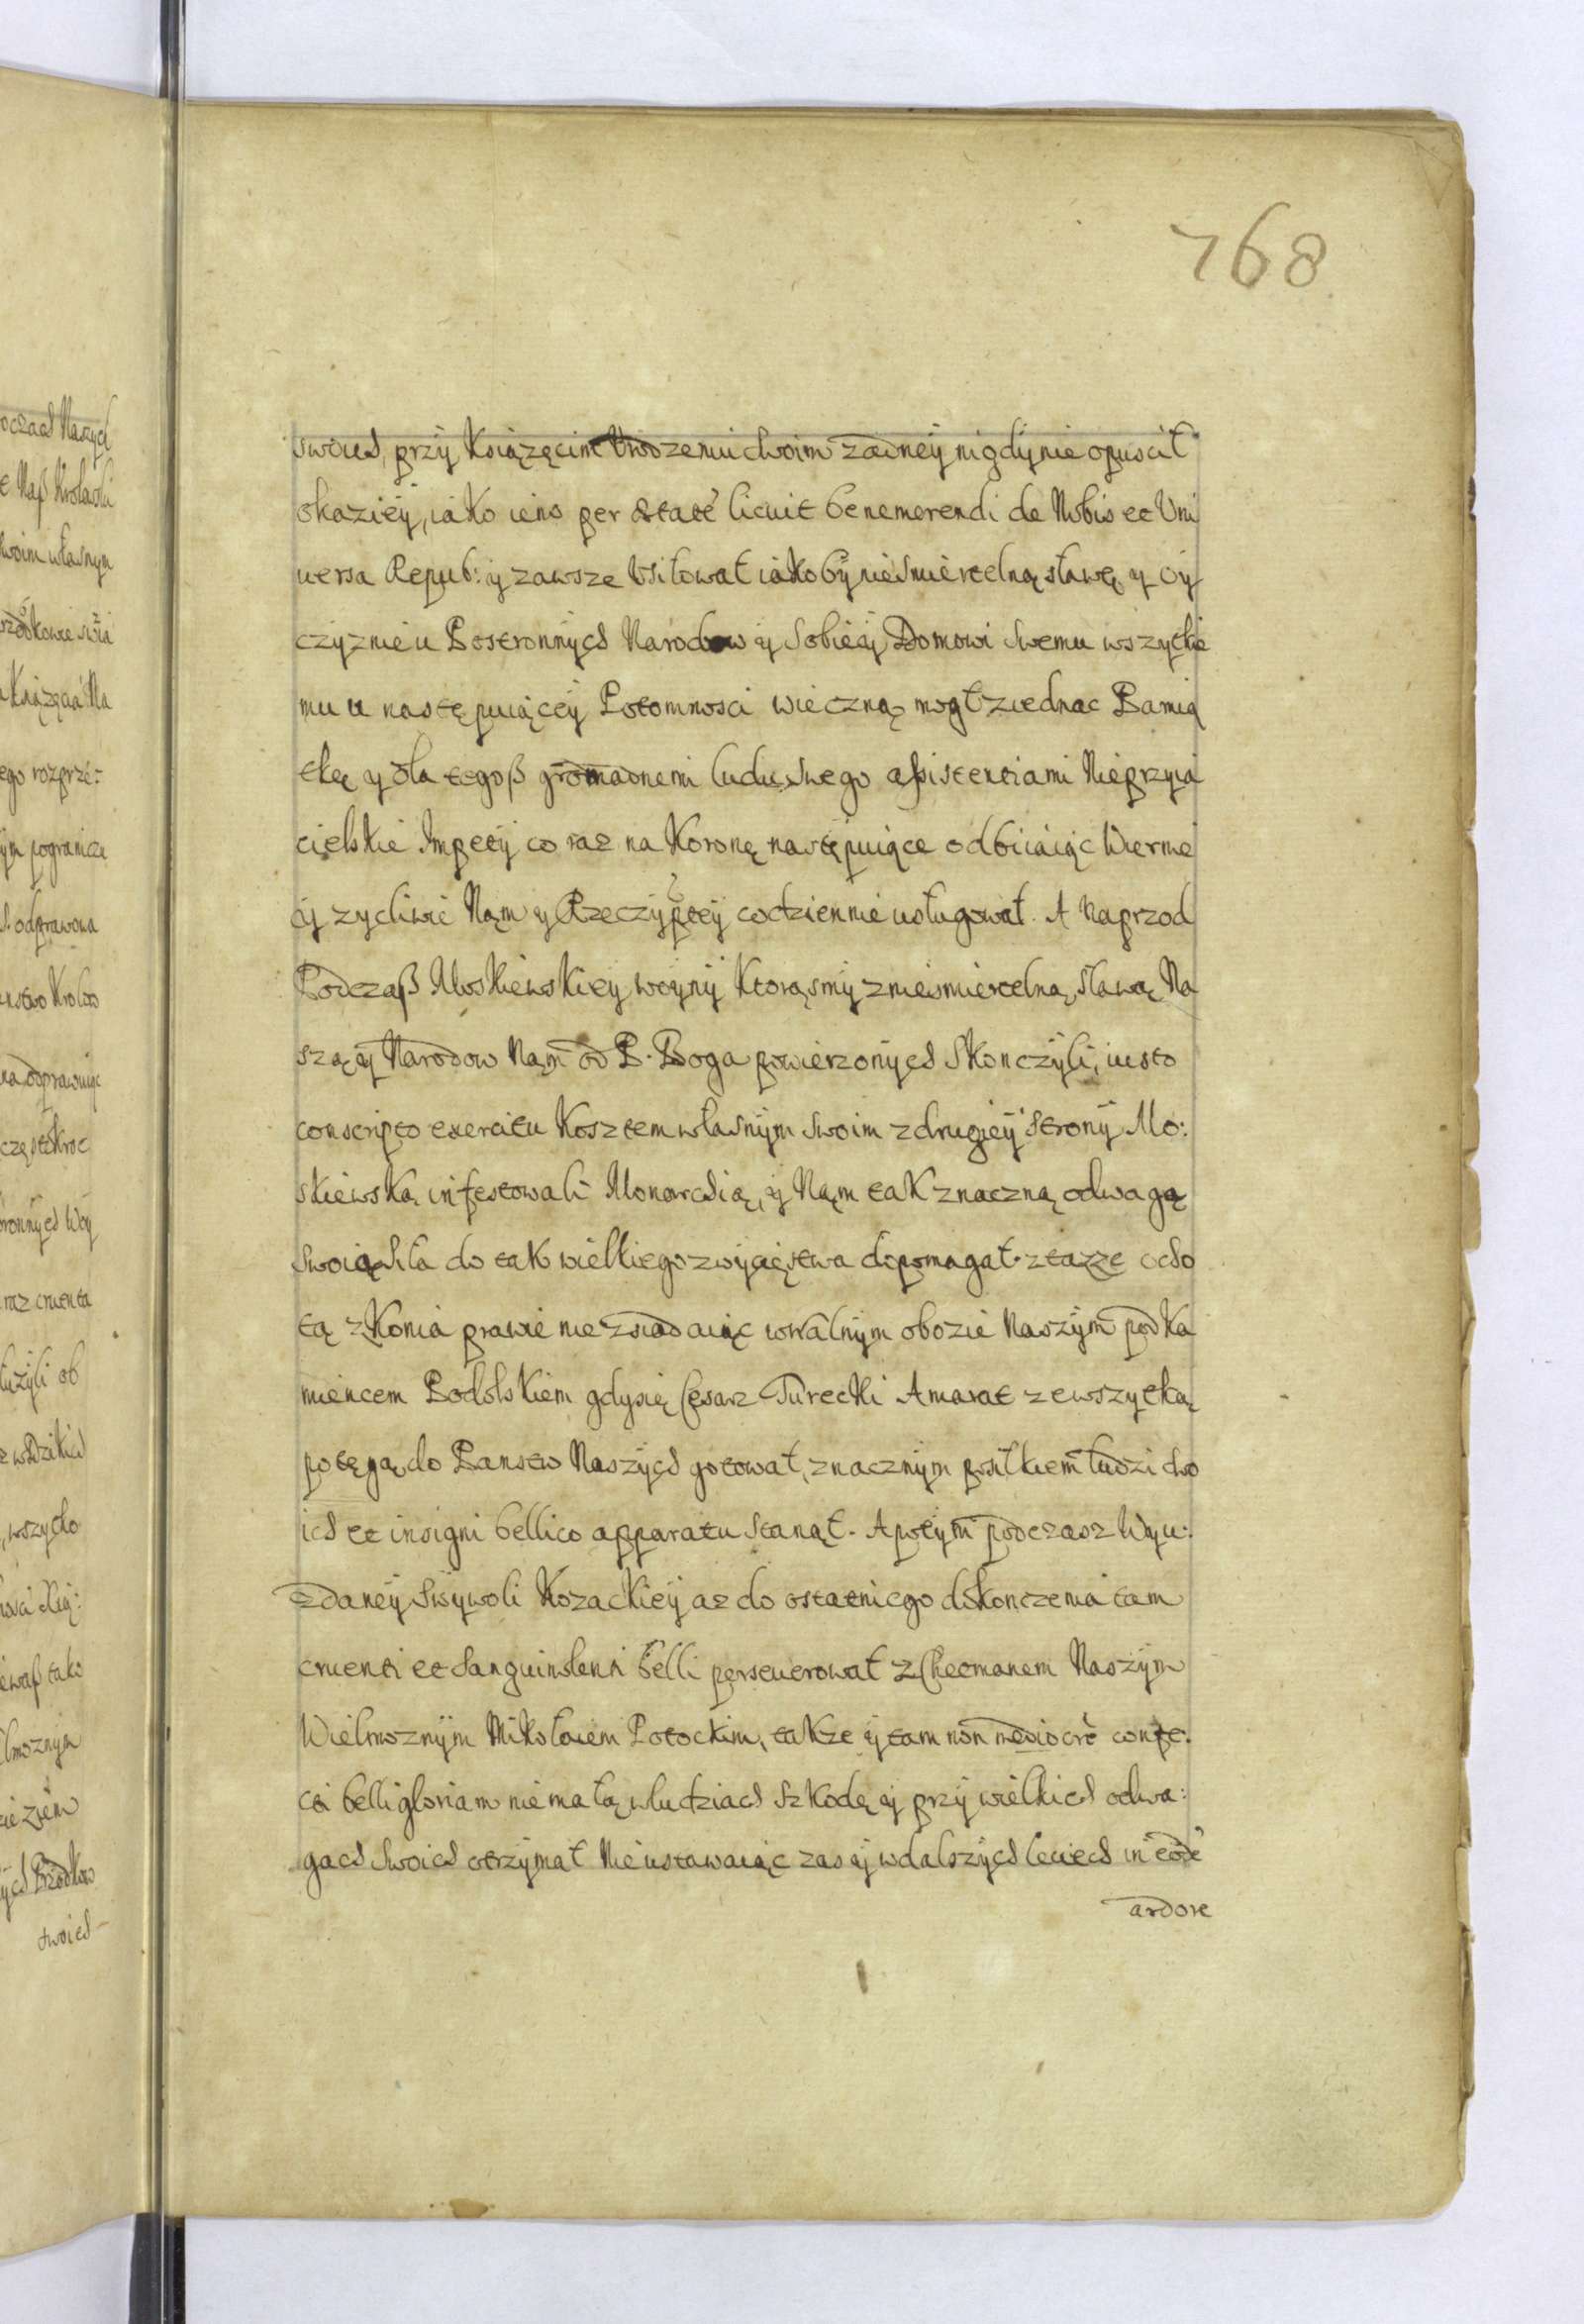 768
swoich, przy Książęcim Urodzeniu swoim zadney nigdy nie opuscił
okaziey, iako iemu per ætatē licuit benemerendi de Nobis et Uni
uersa Repub: y zawsze Usiłował iakoby nieśmiertelną sławę y Oy
czyznie u Postronnych Narodow y Sobie y Domowi swemu wszytkie
mu u następuiącey Potomnosci wieczną mogł ziednac Pamią
tkę y dla tegoß gromadnemi ludu swego aßistentiami Nieprzyia
cielskie Impety co raz na Koronę następuiące odbiiaiąc Wiernie
y zycliwie Nąm y Rzeczyptey codziennie usługował. A Naprzod
Podczaß Moskiewskiey woyny Ktorąsmy z nieśmiertelną, sławą Na
szą y Narodow Nąm od P. Boga powierzonych Skonczyli, iusto
conscripto exercitu Kosztem własnym swoim z drugiey strony Mo:
skiewską infestowali Monarchią, y Nąm tak znaczną odwagą
swoią siła do tak wielkiego zwycięstwa dopomagał. z tązze ocho
tą z Konia prawie nie zsiadaiąc w walnym obozie Naszym pod Ka
miencem Podolskiem gdysię Cęsarz Turecki Amarat zewszytką
potęgą do Panstw Naszych gotował, znacznym posiłkiem ludzi swo
ich et insigni bellico apparatu stanął. A potym podczasz Wyu:
zdaney swywoli Kozackiey az do ostatniego dokonczenia tam
cruenti et sanguinolenti belli perseuerował z Hetmanem Naszym
Wielmoznym Mikołaiem Potockim, takze y tam non mediocrē confe:
cti belli gloriam nie małą w ludziach szkodę y przy wielkich odwa:
gach swoich otrzymał Nieustawaiąc zas y w dalszych leciech in eodē
ardore